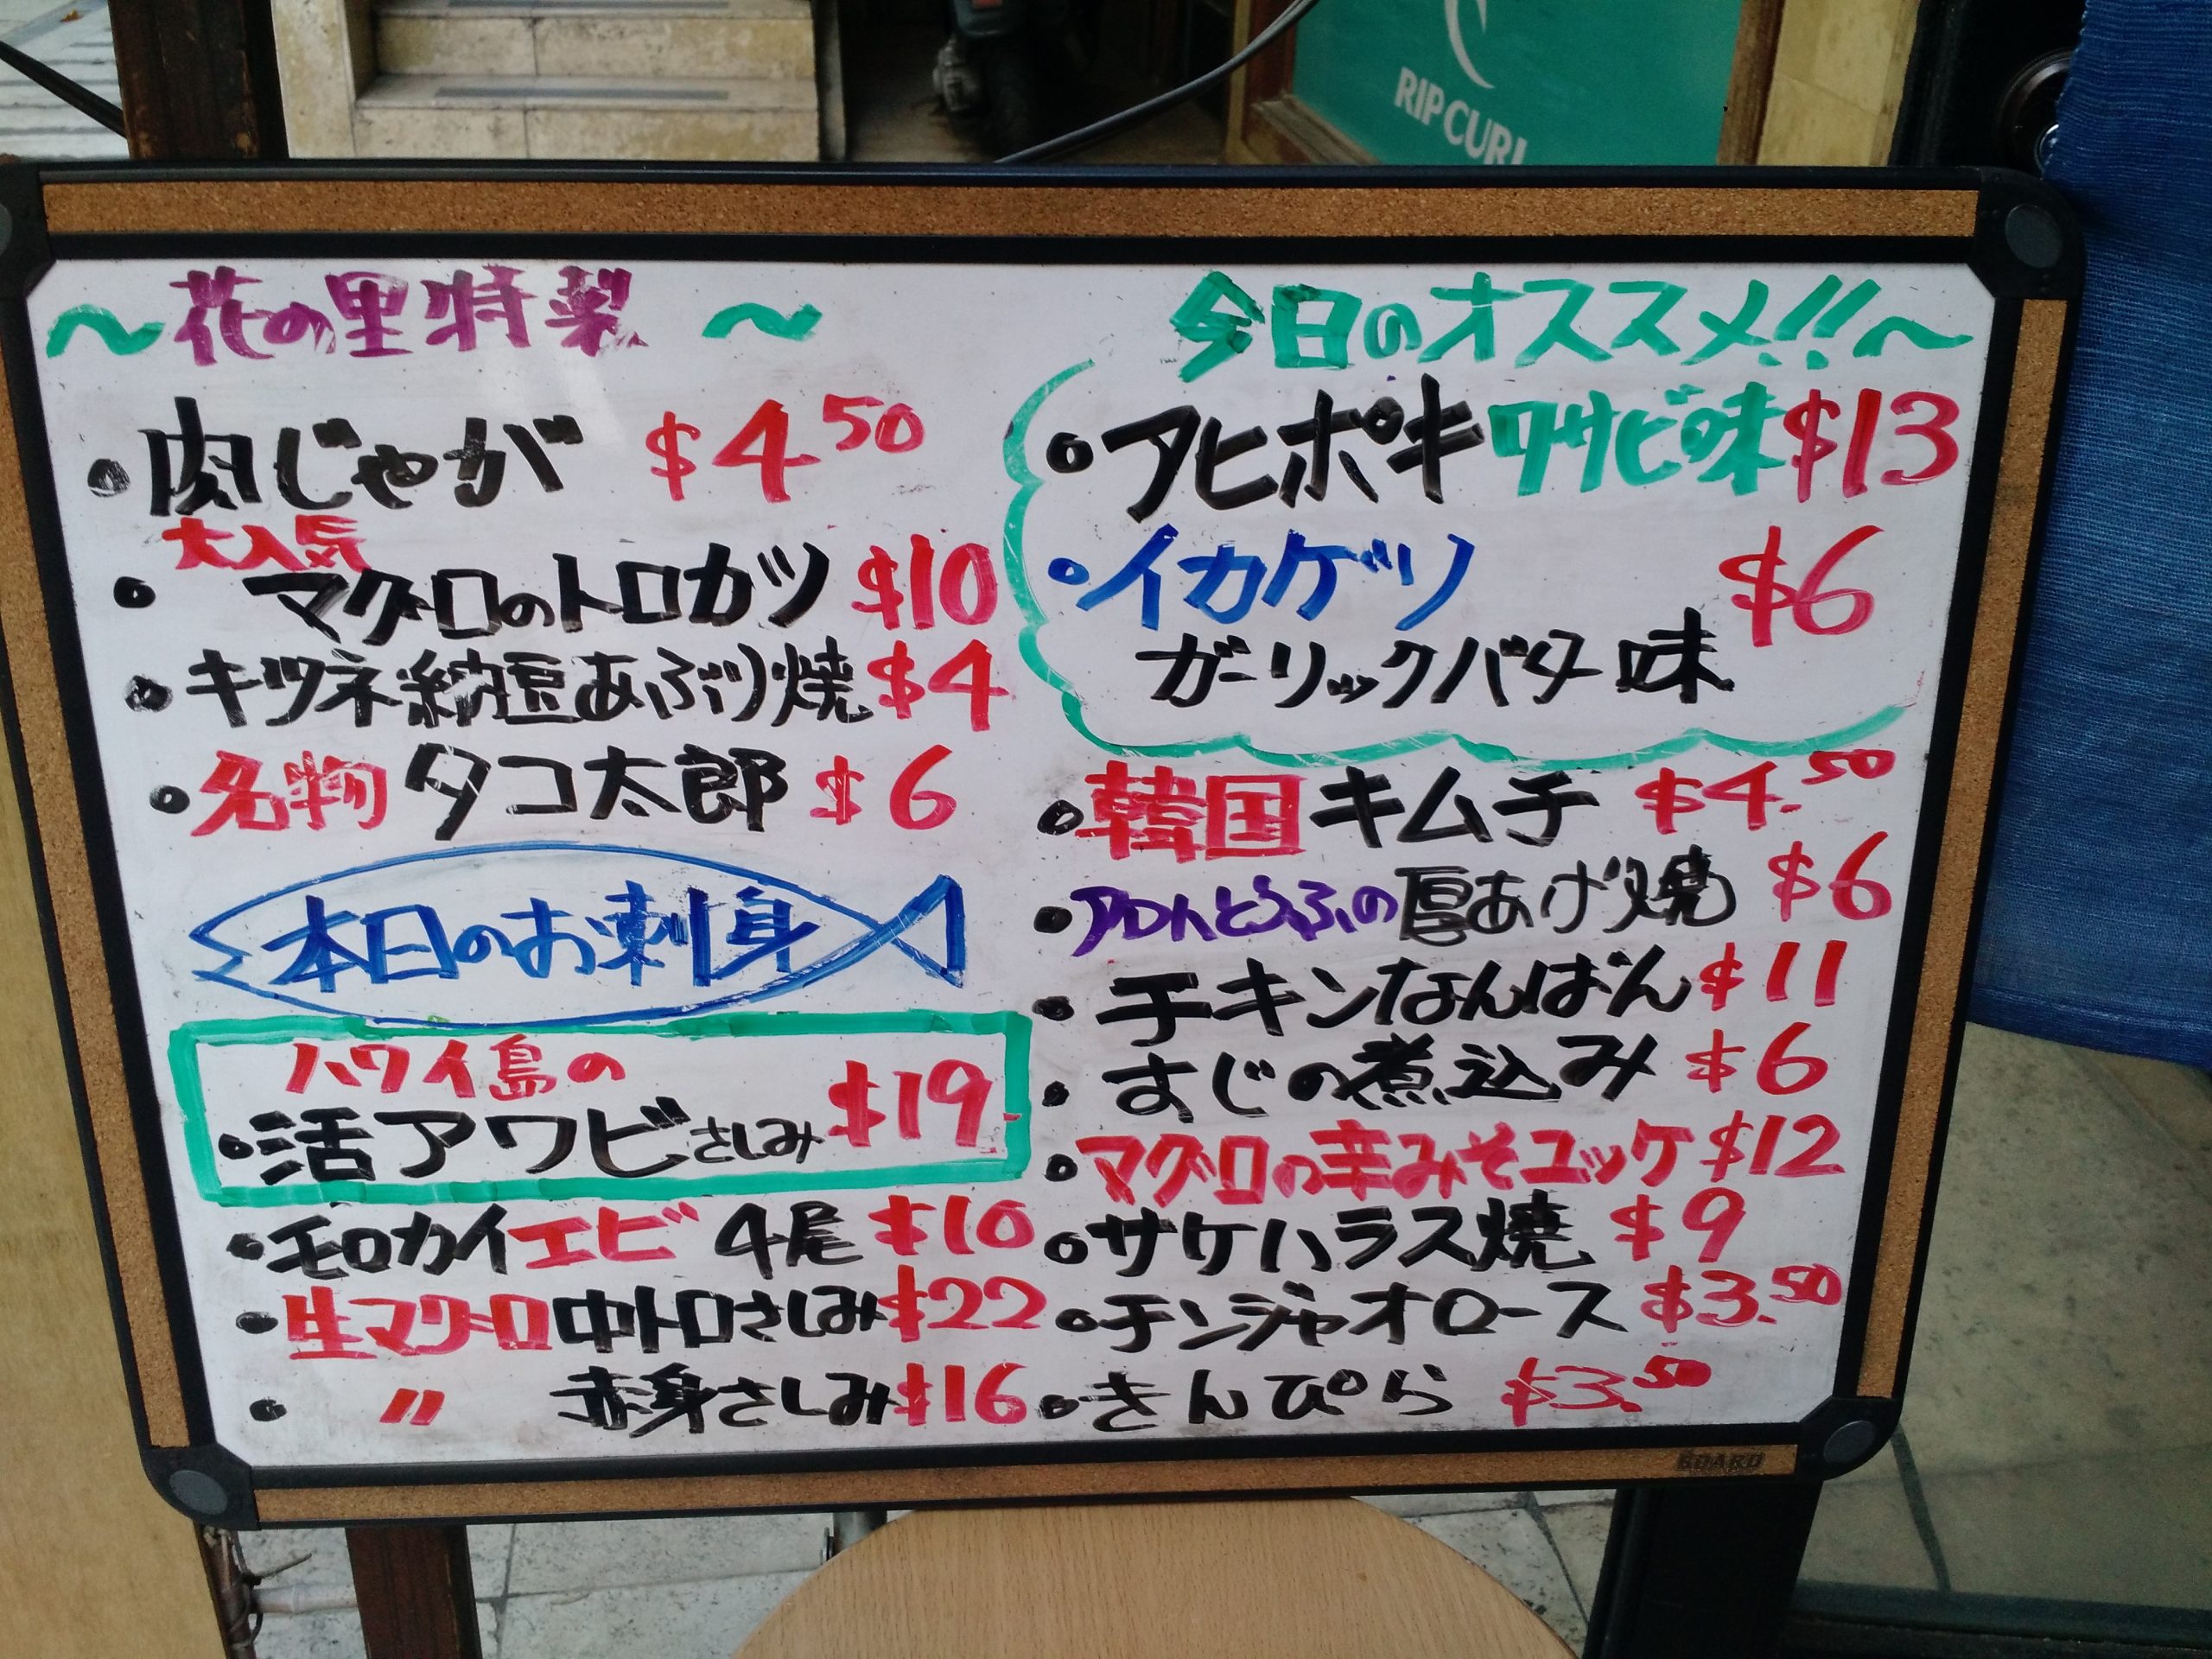 RIP CURL
～花の里特製～
・肉じゃが $4.50
大人気
・マグロのトロカツ $10
・キツネ納豆あぶり焼 $4
・名物 タコ太郎 $6
本日のお刺身
ハワイ島の
・活アワビさしみ $19
・モロカイエビ 4尾 $10
・生マグロ中トロさしみ $22
・〃 赤身さしみ $16
今日のオススメ!!～
・アヒポキワサビ味 $13
・イカゲソ $6
ガーリックバター味
・韓国キムチ $4.50
・アロハとうふの厚あげ焼 $6
・チキンなんばん $11
・すじの煮込み $6
・マグロの辛みそユッケ $12
・サケハラス焼 $9
・チンジャオロース $3.50
・きんぴら $3.50
BOARD